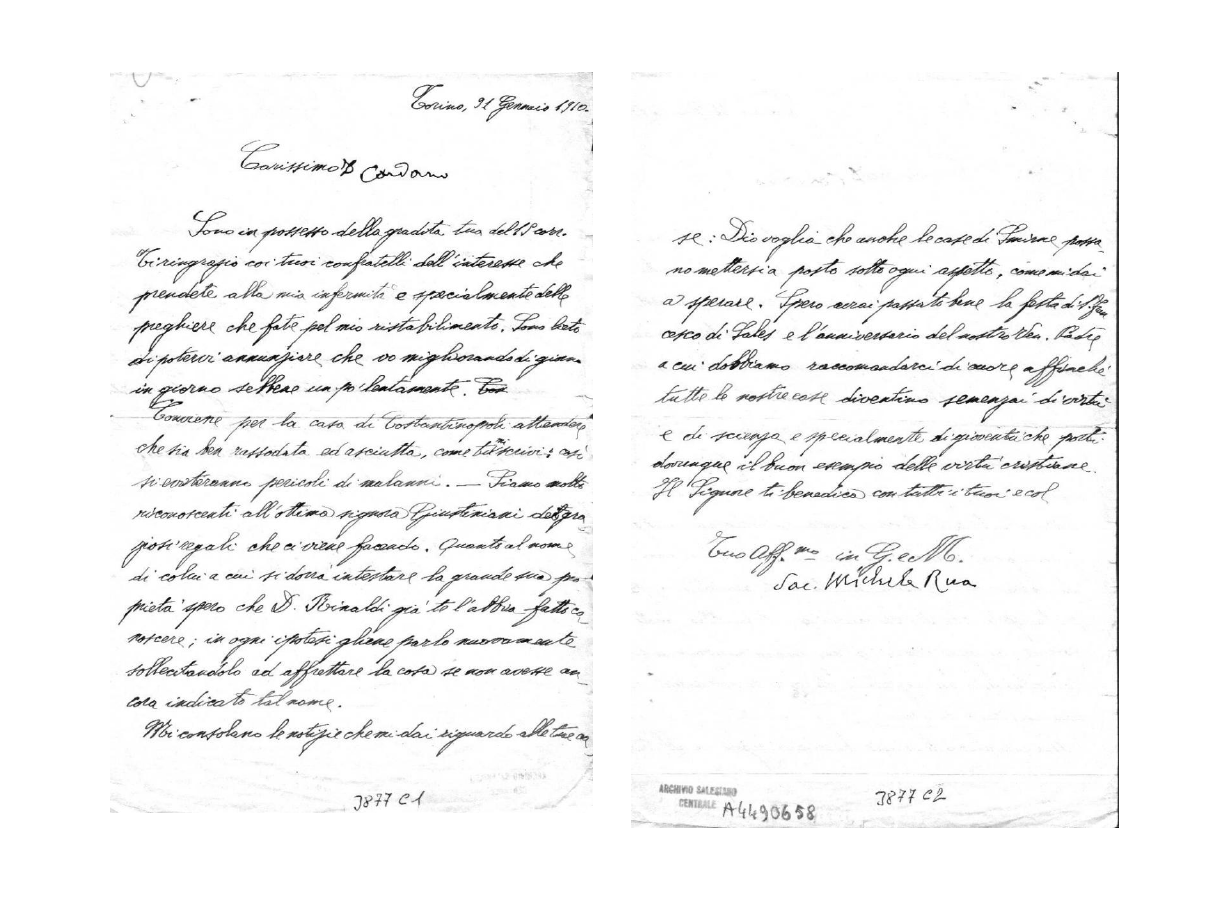 Torino, 31 Gennaio 1910.
Carissimo D. Cardano
Sono in possesso della gradita tua del 15 corr.
Ti ringrazio coi tuoi confratelli dell'interesse che
prendete alla mia infermità e specialmente delle
preghiere che fate pel mio ristabilimento. Sono lieto
di potervi annunziare che vo migliorando di giorno
in giorno sebbene un po' lentamente. Con
Conviene per la casa di Costantinopoli attendere
che sia ben rassodata ed asciutta, come mi scrivi: così
si eviteranno pericoli di malanni. — Siamo molto
riconoscenti all'ottima signora Giustiniani dei gra
ziosi regali che ci viene facendo. Quanto al nome
di colui a cui si dovrà intestare la grande sua pro-
prietà spero che D. Rinaldi già te l'abbia fatto co
noscere; in ogni ipotesi gliene parlo nuovamente
sollecitandolo ad affrettare la cosa se non avesse an-
cora indicato tal nome.
Mi consolano le notizie che mi dai riguardo alle tue ca
J877 C1
se: Dio voglia che anche le case di Smirne possa
no mettersi a posto sotto ogni aspetto, come mi dai
a sperare. Spero avrai passato bene la festa di S. Fran
cesco di Sales e l'anniversario del nostro Ven. Padre
a cui dobbiamo raccomandarci di cuore affinchè
tutte le nostre case diventino semenzai di virtù
e di scienza e specialmente di gioventù che porti
dovunque il buon esempio delle virtù cristiane.
Il Signore ti benedica con tutti i tuoi e col
Tuo Aff.mo in G. e M.
Sac. Michele Rua
ARCHIVIO SALESIANO
CENTRALE
A4490658
J877 C2